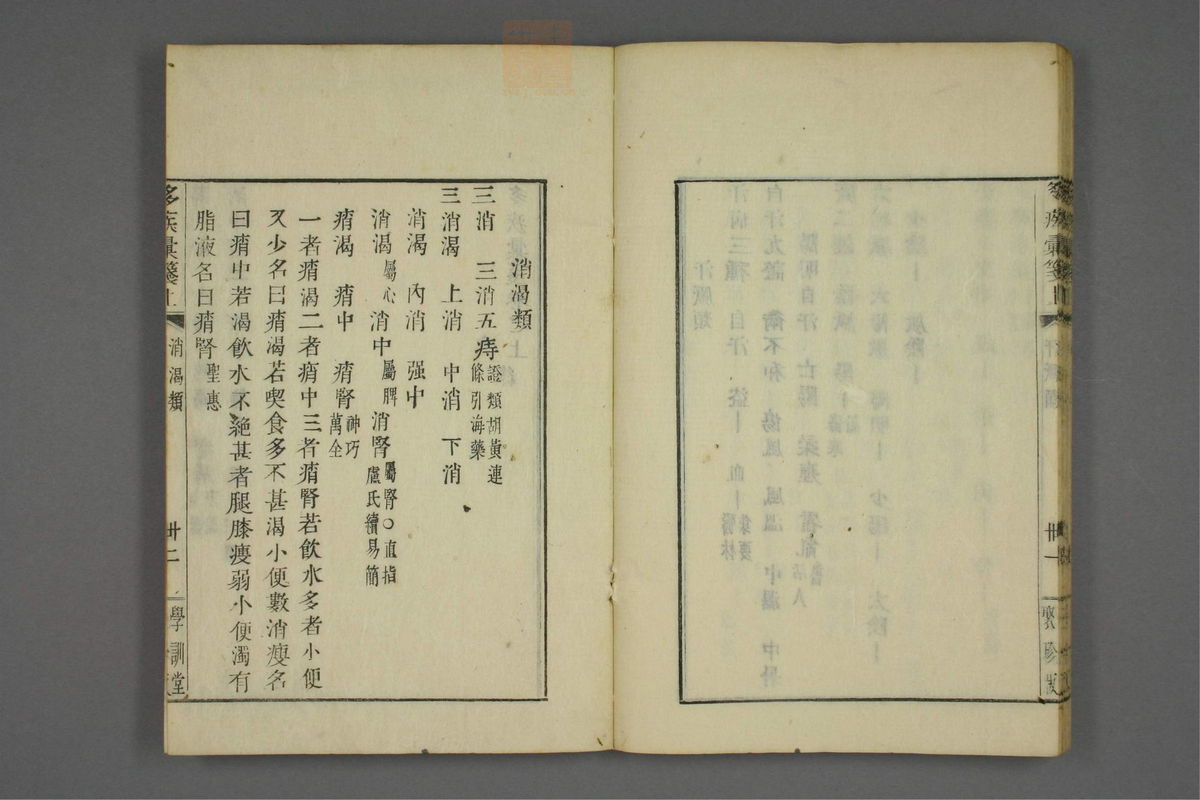 消渴類
三消　三消五痔證類胡黃連條引海藥
三消渴　上消　中消　下消
消渴　內消　强中
消渴屬心消中屬脾消腎屬腎○直指盧氏續易簡
痟渴　痟中　痟腎神巧萬全
一者痟渴二者痟中三者痟腎若飲水多者小便
又少名曰痟渴若喫食多不甚渴小便數消瘦名
曰痟中若渴飲水不絕甚者腿膝瘦弱小便濁有
脂液名曰痟腎聖惠
疾彙箋上
消渴類
卅二
學訓堂
疾彙箋
卅一
聚珍版